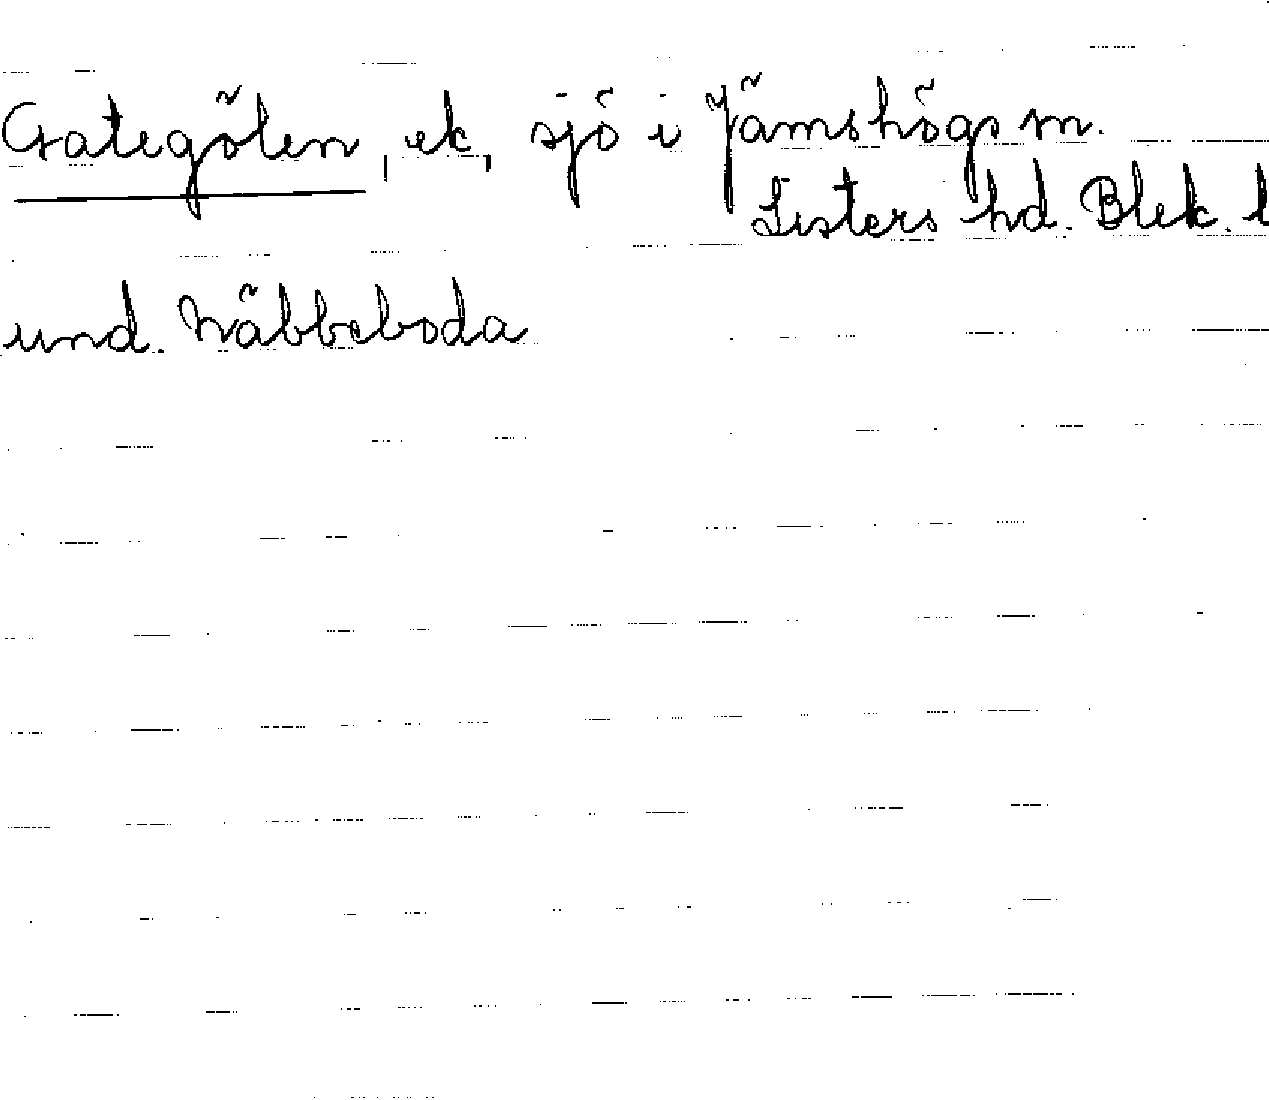 Gategölen, ek, sjö i Jämshögs sn.
Listers hd. Blek. l
und. Näbbeboda